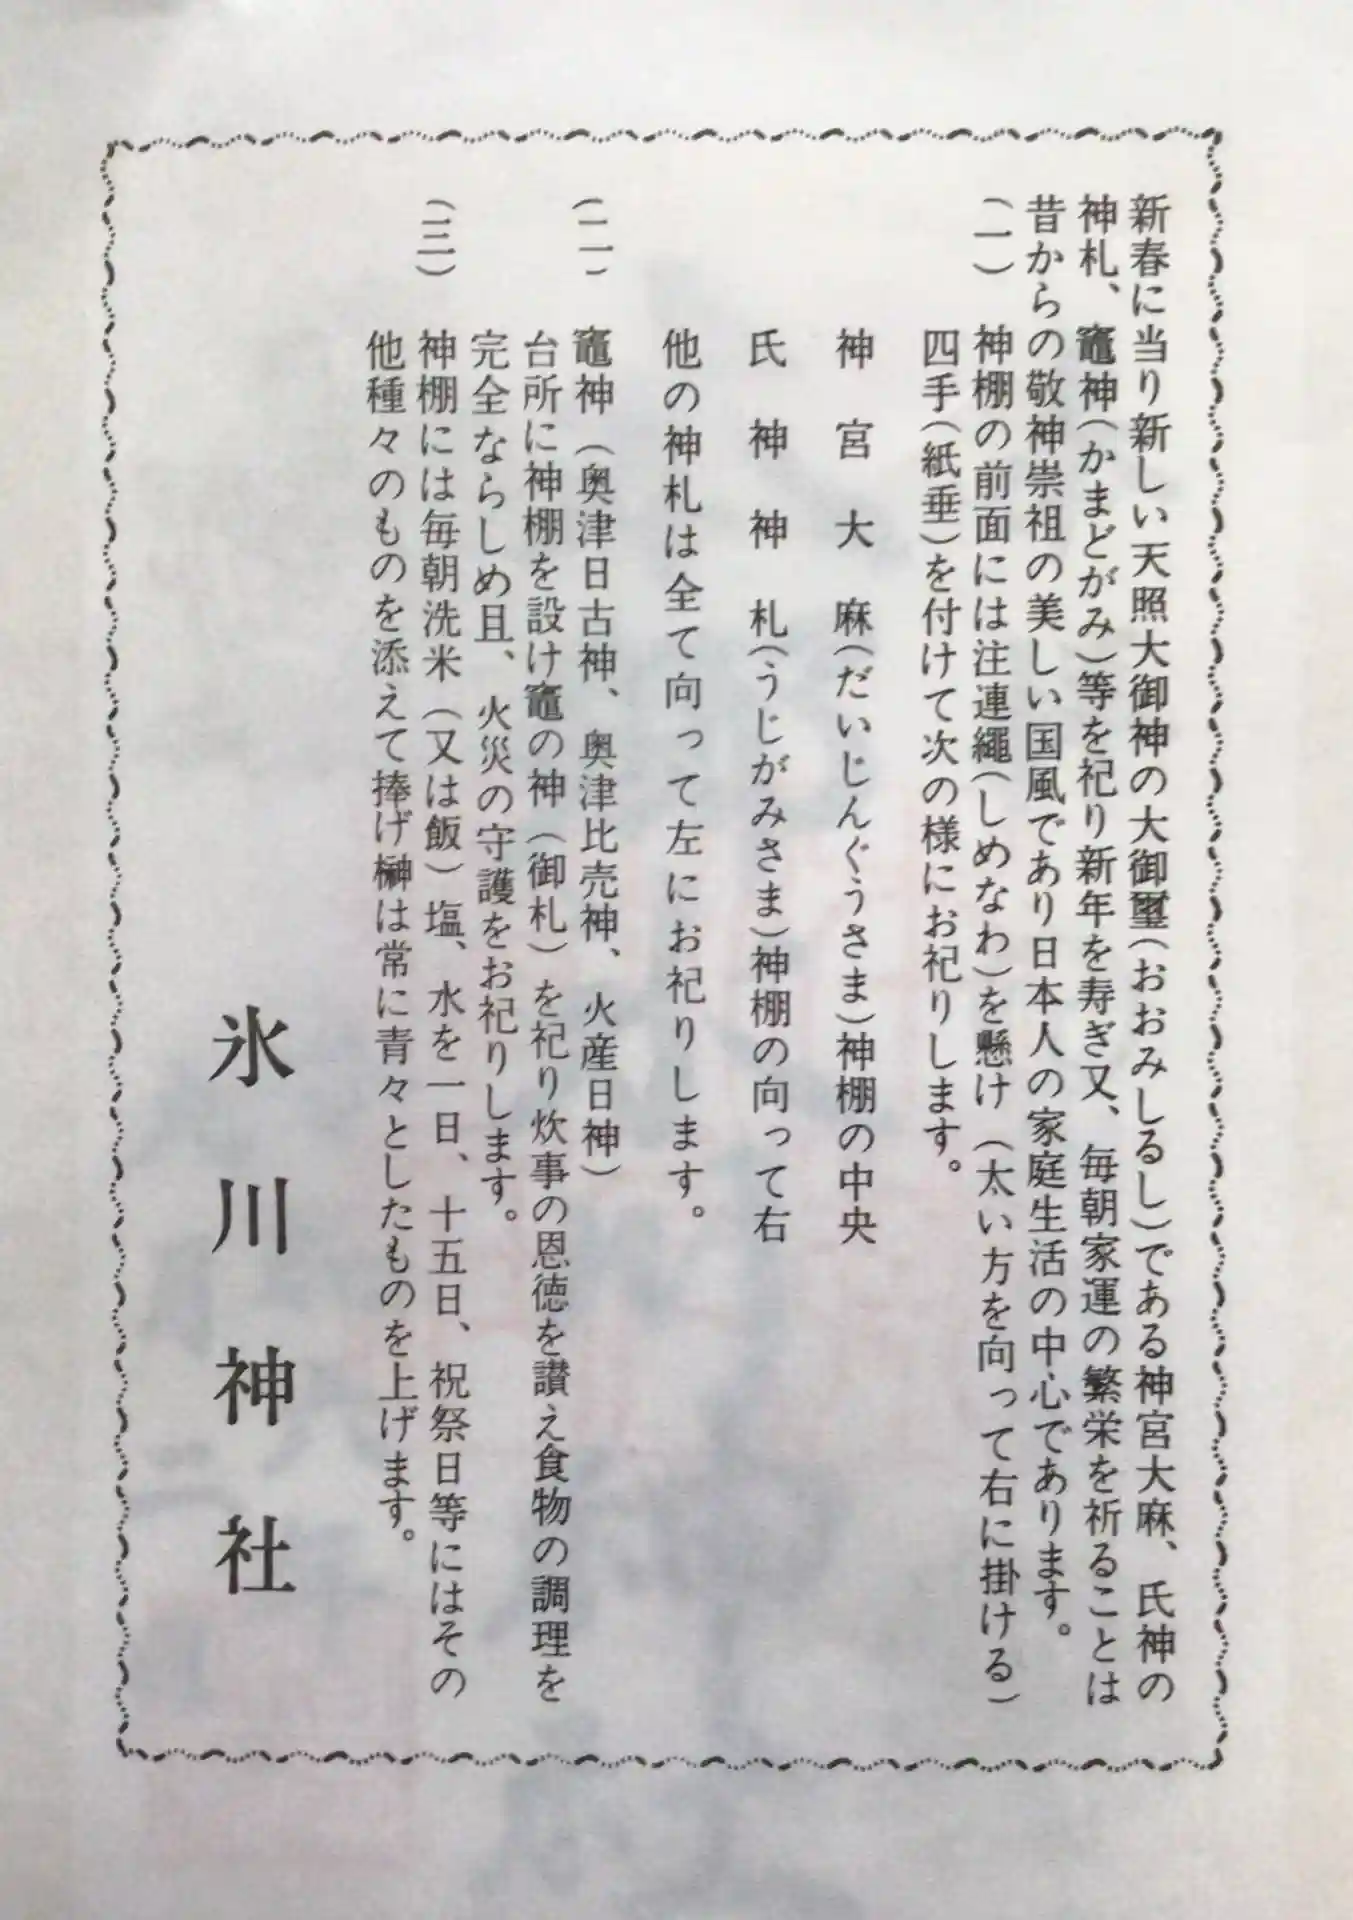 新春に当り新しい天照大御神の大御璽(おおみしるし)である神宮大麻、氏神の
神札、竈神(かまどがみ)等を祀り新年を寿ぎ又、毎朝家運の繁栄を祈ることは
昔からの敬神崇祖の美しい国風であり日本人の家庭生活の中心であります。
(一) 神棚の前面には注連繩(しめなわ)を懸け(太い方を向って右に掛ける)
四手(紙垂)を付けて次の様にお祀りします。
神宮大麻(だいじんぐうさま)神棚の中央
氏神神札(うじがみさま)神棚の向って右
他の神札は全て向って左にお祀りします。
(二) 竈神(奥津日古神、奥津比売神、火産日神)
台所に神棚を設け竈の神(御札)を祀り炊事の恩徳を讃え食物の調理を
完全ならしめ且、火災の守護をお祀りします。
(三) 神棚には毎朝洗米(又は飯)塩、水を一日、十五日、祝祭日等にはその
他種々のものを添えて捧げ榊は常に青々としたものを上げます。
氷川神社